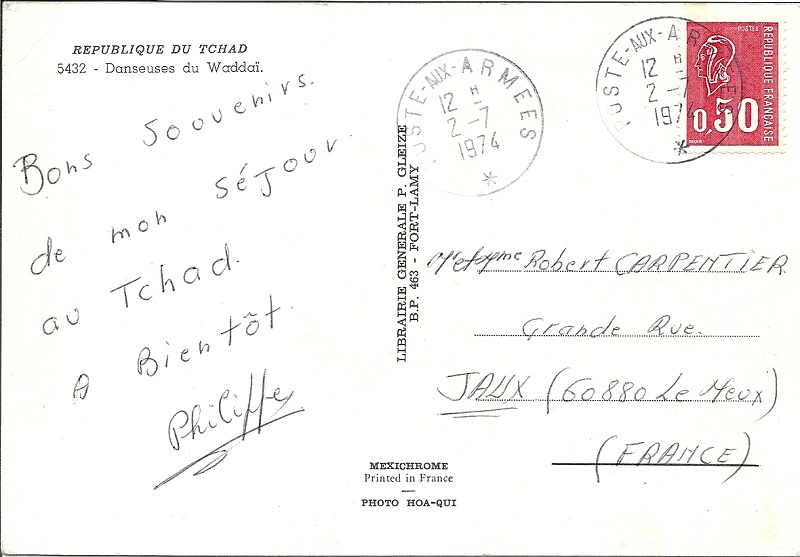 REPUBLIQUE DU TCHAD
5432 - Danseuses du Waddaï.
Bons Souvenirs.
de mon séjour
au Tchad.
A Bientôt.
Philippe
LIBRAIRIE GENERALE P. GLEIZE
B.P. 463 - FORT-LAMY
MEXICHROME
Printed in France
PHOTO HOA-QUI
POSTE-AUX-ARMEES
12 H
2 -7
1974
*
POSTE-AUX-ARMEES
12 H
2 -7
1974
*
POSTES
REPUBLIQUE FRANÇAISE
0,50
Mr et Mme Robert CARPENTIER
Grande Rue.
JAUX (60880 Le Meux)
(FRANCE)